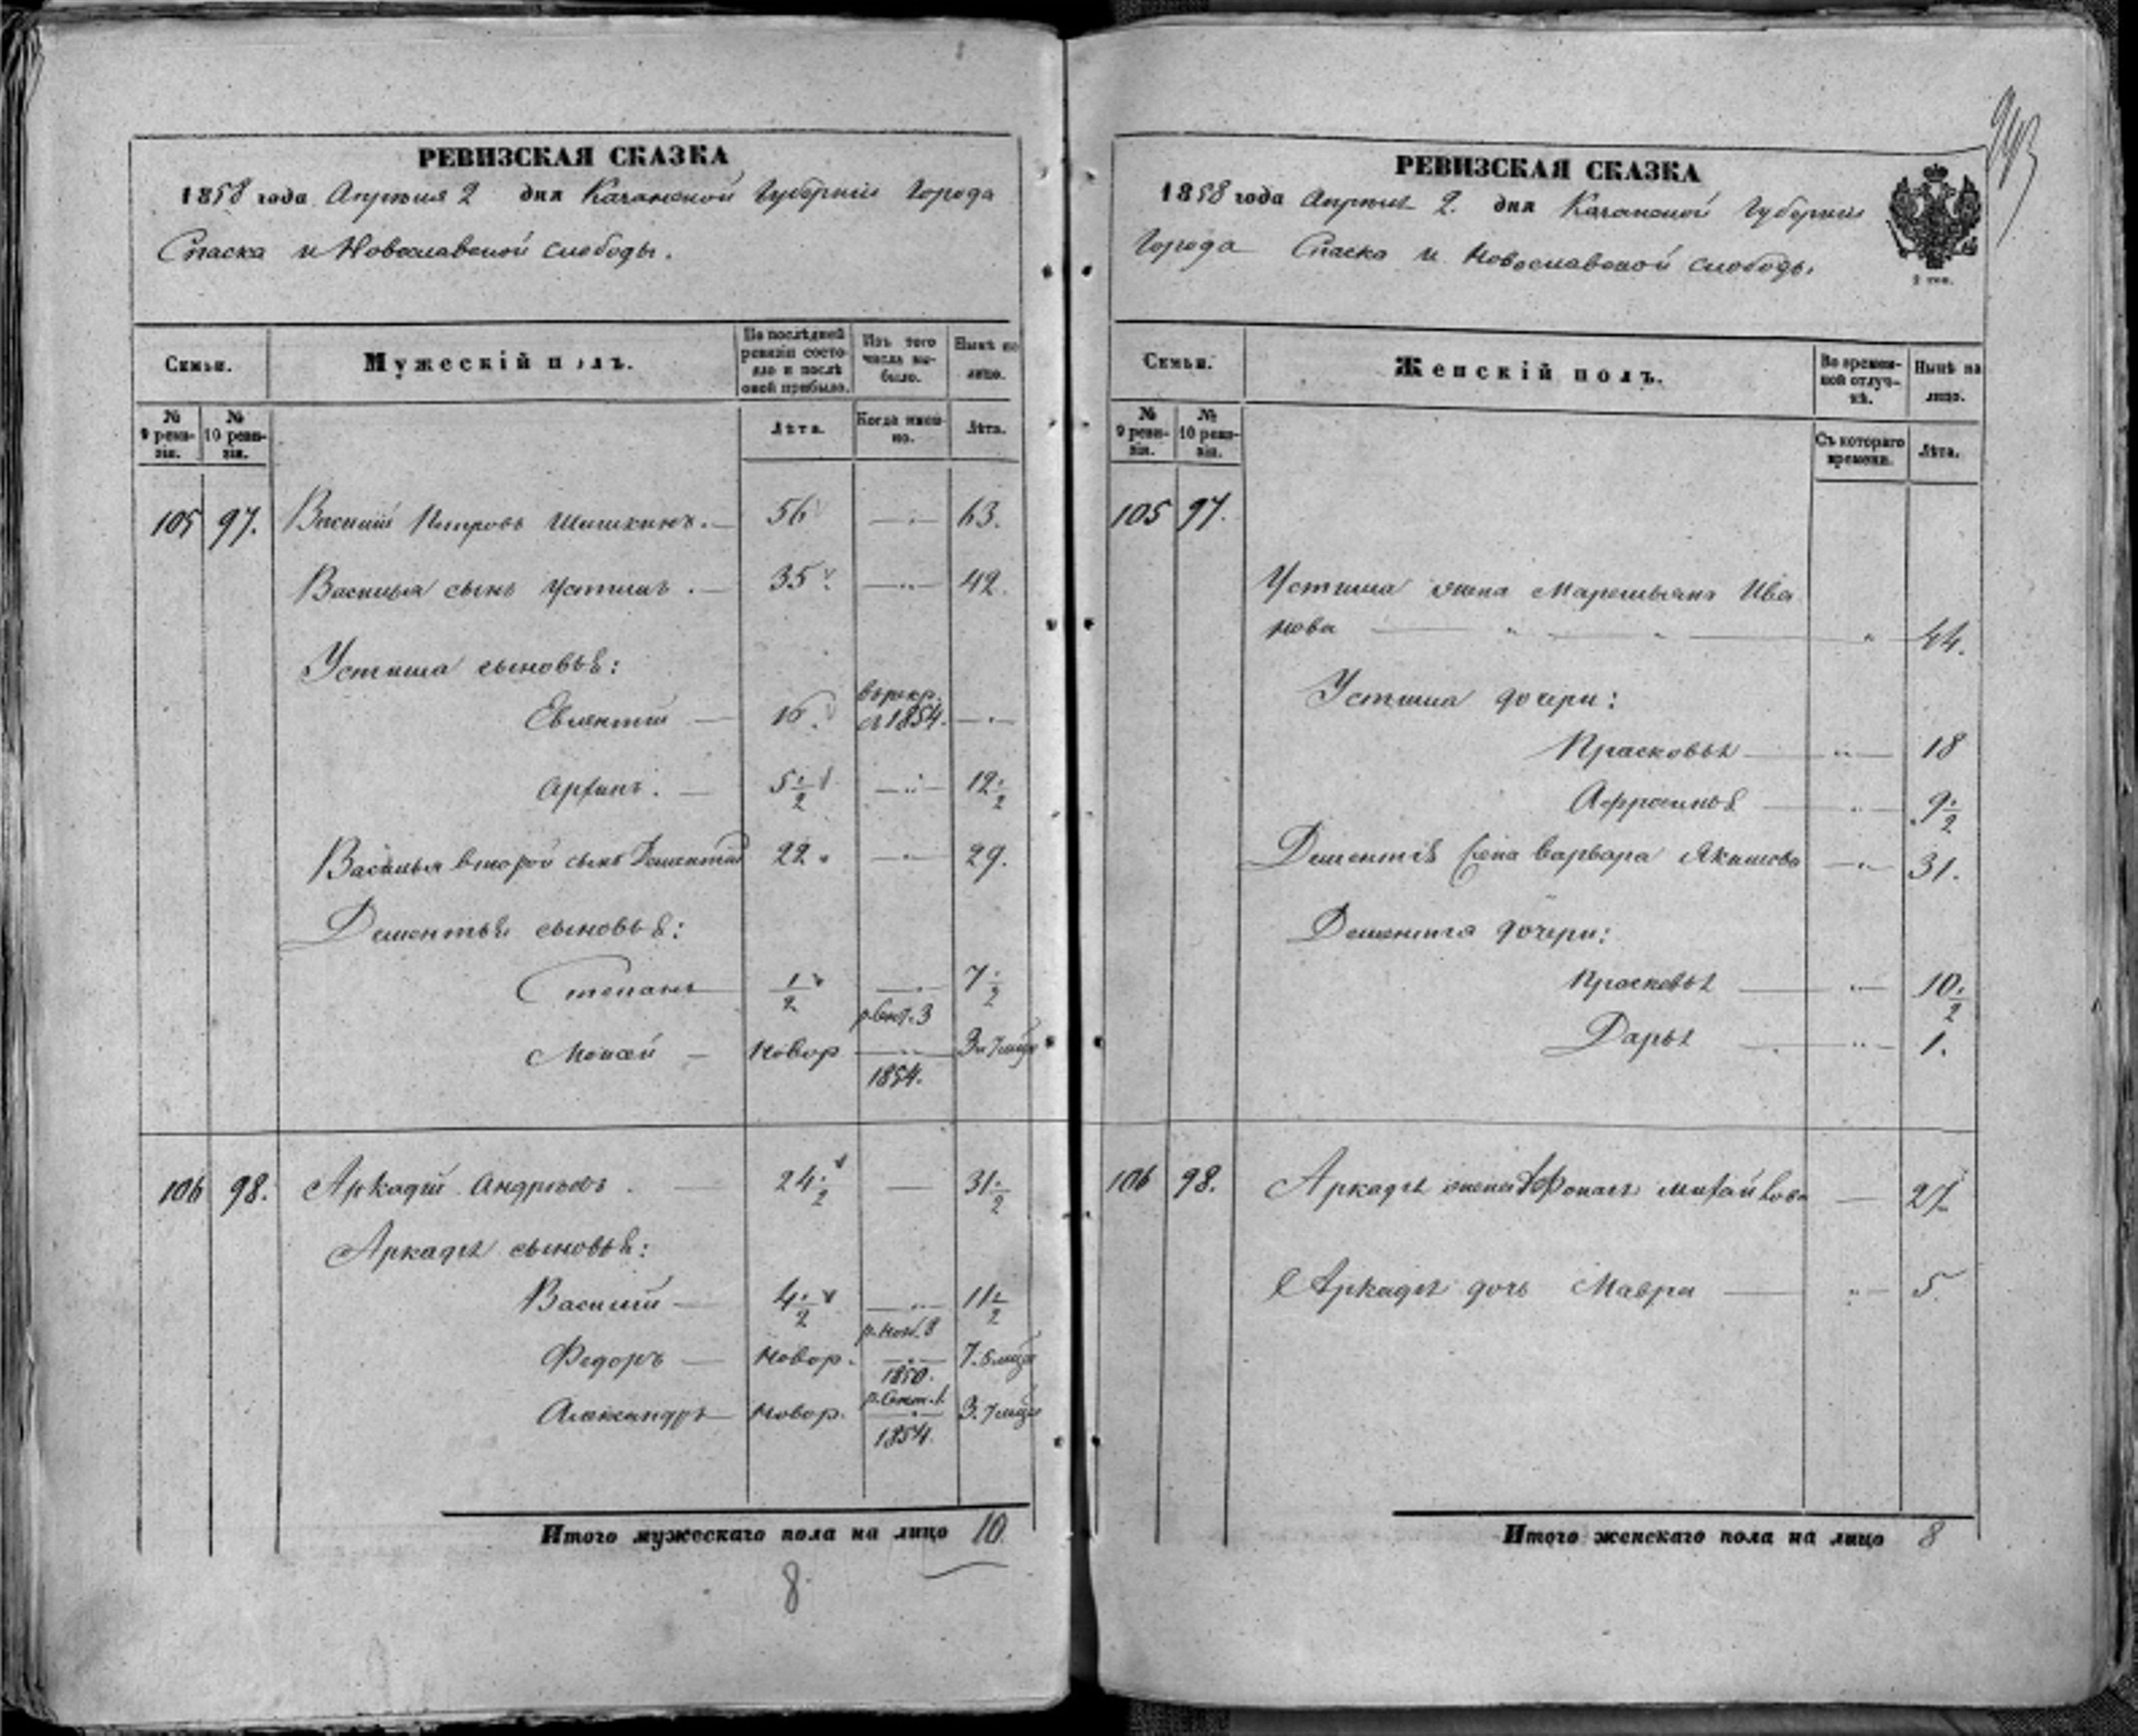 РЕВИЗСКАЯ СКАЗКА
1858 года Апреля 2 дня Казанской Губернии Города
Спаска и Новославской слободы.
Семьи.
Мужескій полъ.
По послѣдней ревизіи состояло и послѣ оной прибыло.
Изъ того числа выбыло.
Нынѣ на лицо.
№ 9 ревизіи.
№ 10 ревизіи.
Лѣта.
Когда именно.
Лѣта.
105 97. Василій Петровъ Шишкинъ. 56 63.
Василья сынъ Устинъ. 35 42.
Устина сыновьѣ:
16 1854.
5 1/2 12 1/2
Василья второй сынъ Дементій 22 29.
Дементья сыновьѣ:
Степанъ 1/2 7 1/2
р. Сент. 3
Моисей Новор 3 и 7 мѣс
1854.
106 98. Аркадій Андреевъ. 24 1/2 31 1/2
Аркадія сыновьѣ:
Василій 4 1/2 11 1/2
р. Ноя. 8
Федоръ Новор. 7. 5 мѣс
1850.
р. Сент. 1.
Александръ Новор. 3. 7 мѣс
1854.
Итого мужескаго пола на лицо 10
8
РЕВИЗСКАЯ СКАЗКА
1858 года Апреля 2. дня Казанской Губернии
Города Спаска и Новославской слободы.
943
Семьи.
Женскій полъ.
Во временной отлучкѣ.
Нынѣ на лицо.
№ 9 ревизіи.
№ 10 ревизіи.
Съ котораго времени.
Лѣта.
105 97.
Устина жена Маремьяна Ива
нова 44.
Устина дочери:
Прасковья 18
Афросинья 9 1/2
Дементія жена Варвара Якимова 31.
Дементія дочери:
Прасковья 10 1/2
Дарья 1.
106 98. Аркадія жена 27.
Аркадія дочь Мавра 5.
Итого женскаго пола на лицо 8